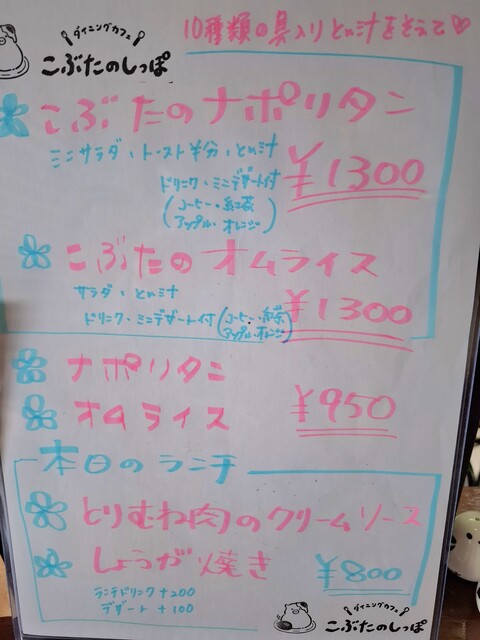 ダイニングカフェ
こぶたのしっぽ
10種類の具入りとん汁をそえて♡
こぶたのナポリタン
ミニサラダ、トースト半分、とん汁
ドリンク・ミニデザート付
(コーヒー・紅茶
アップル・オレンジ)
¥1300
こぶたのオムライス
サラダ、とん汁
ドリンク・ミニデザート付(コーヒー・紅茶
アップル・オレンジ)
¥1300
ナポリタン
オムライス
¥950
本日のランチ
とりむね肉のクリームソース
しょうが焼き
¥800
ランチドリンク+200
デザート+100
ダイニングカフェ
こぶたのしっぽ